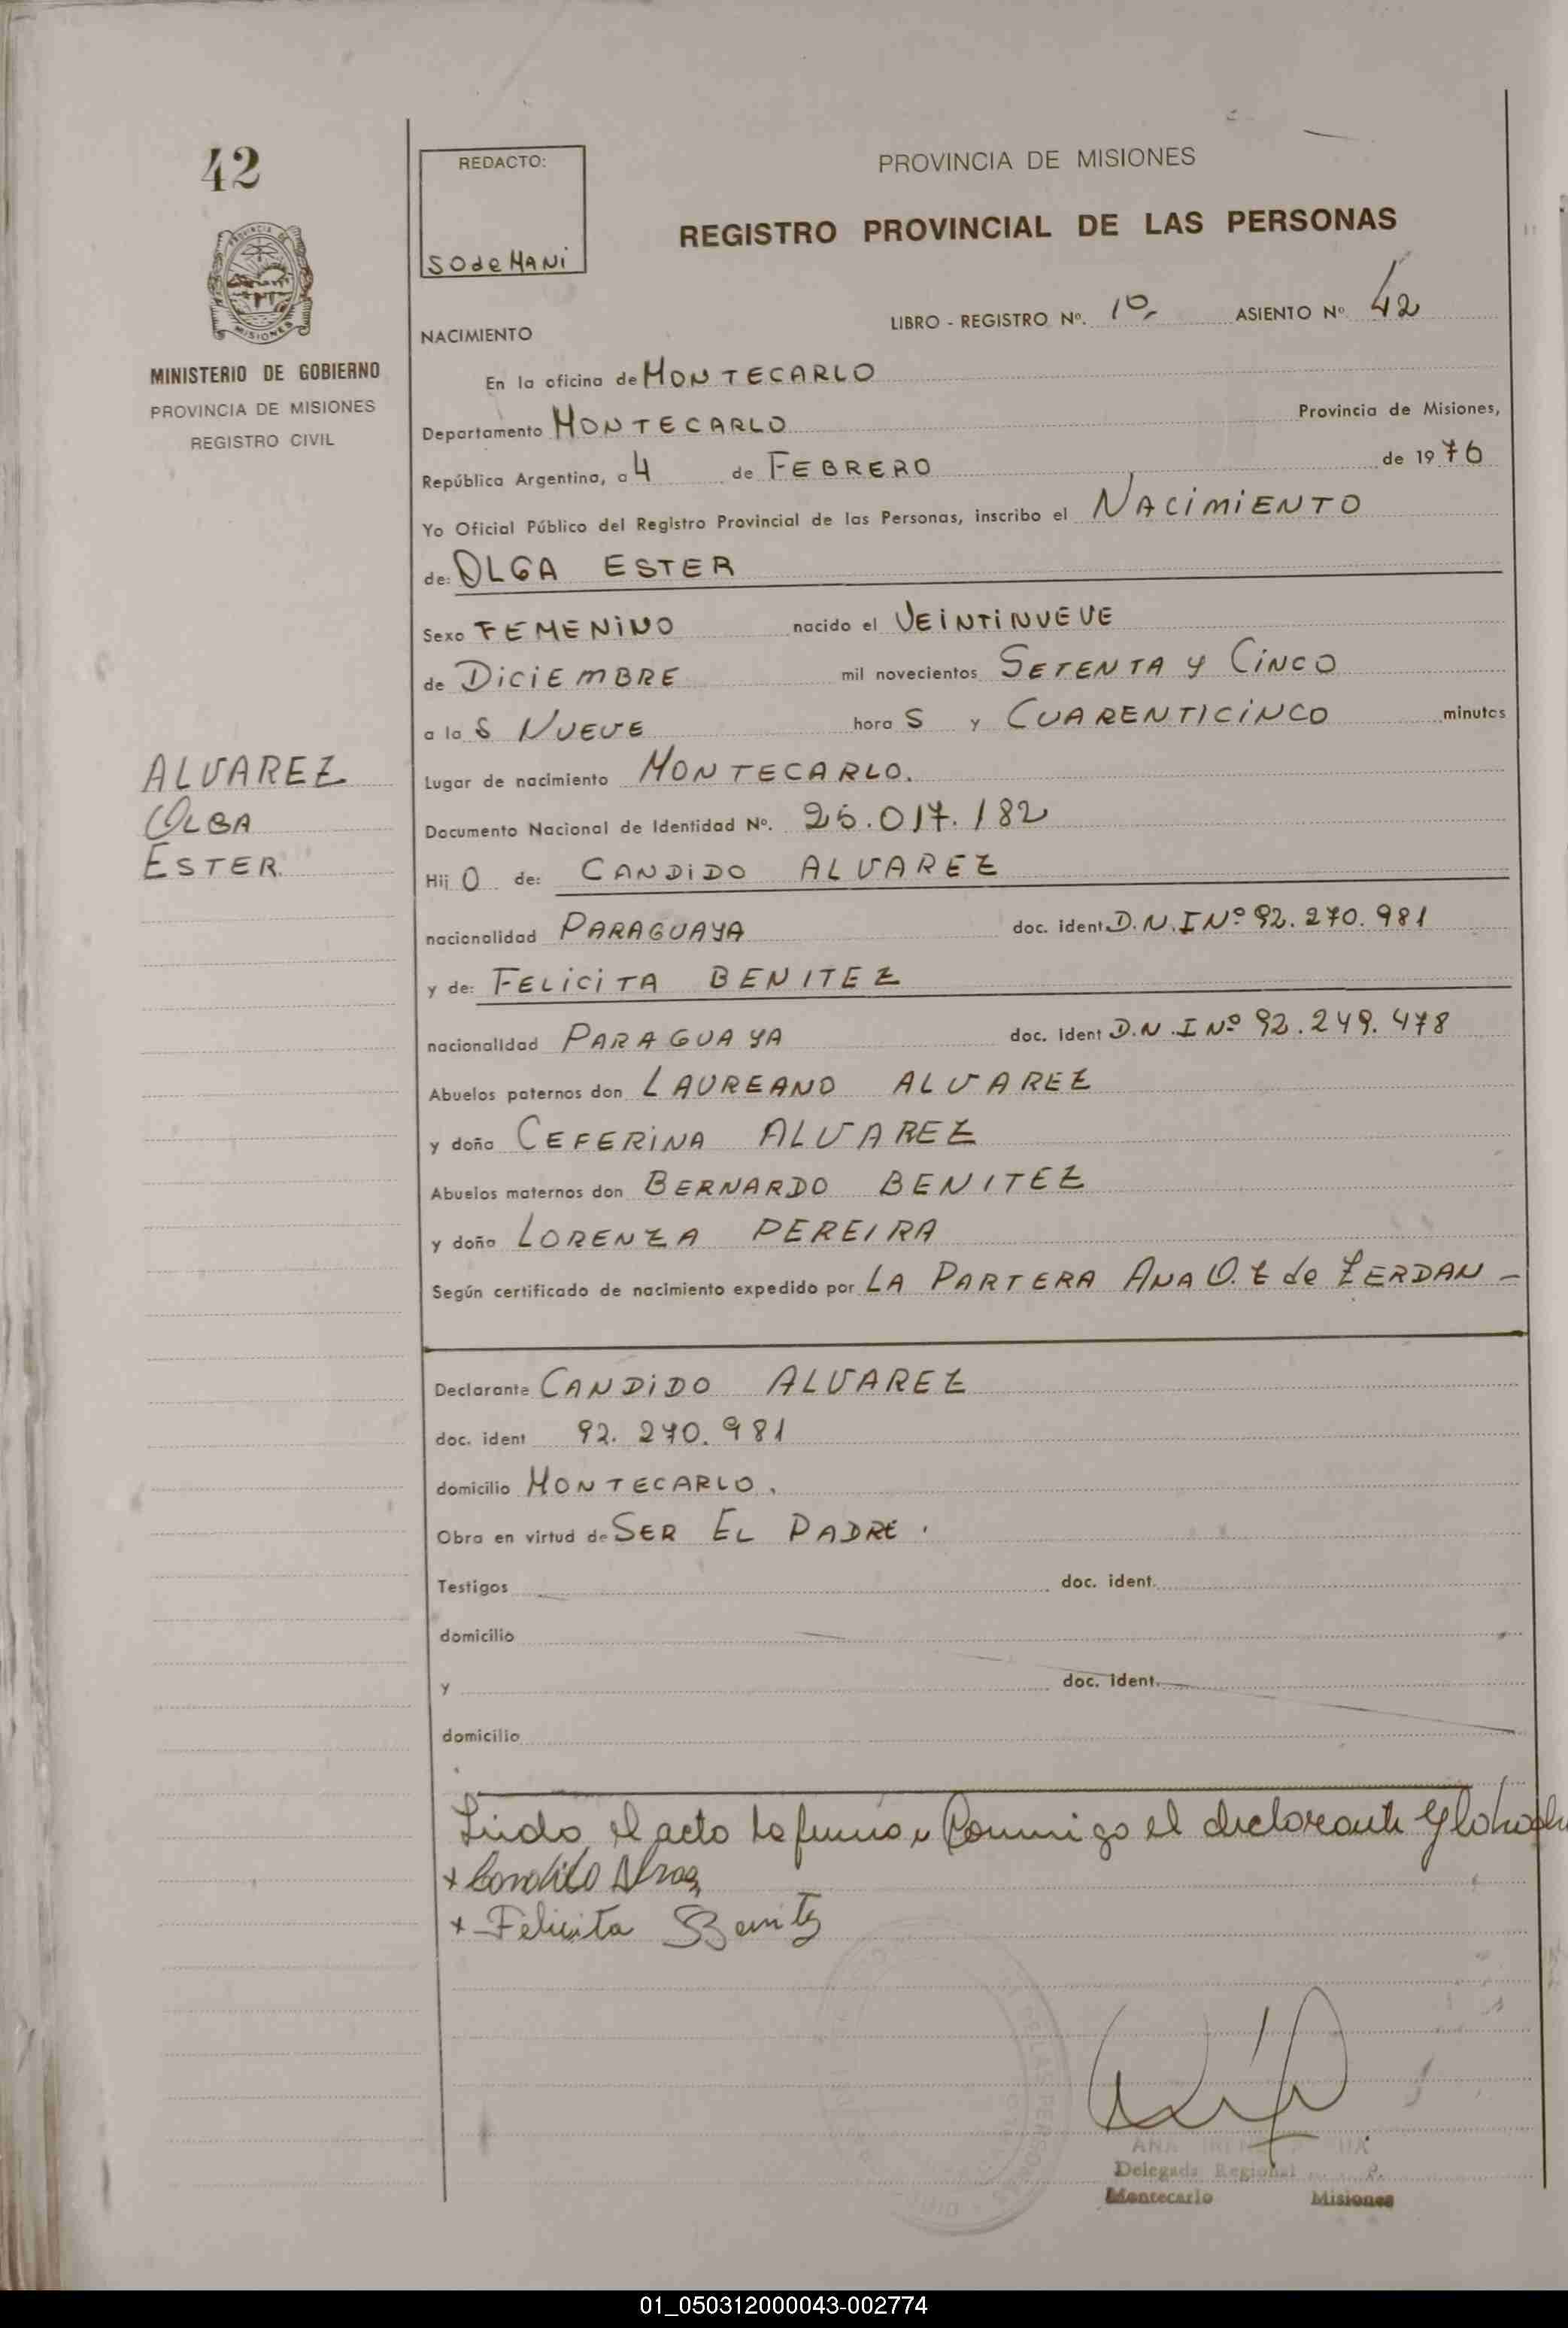 42
REDACTO:
SOdeMANi
PROVINCIA DE MISIONES
REGISTRO PROVINCIAL DE LAS PERSONAS
PROVINCIA DE
MISIONES
MINISTERIO DE GOBIERNO
PROVINCIA DE MISIONES
REGISTRO CIVIL
LIBRO - REGISTRO Nº. 1º- ASIENTO Nº 42
NACIMIENTO
En la oficina de MONTECARLO
Departamento MONTECARLO Provincia de Misiones,
República Argentina, a 4 de FEBRERO de 1976
Yo Oficial Público del Registro Provincial de las Personas, inscribo el NACIMIENTO
de: OLGA ESTER
Sexo FEMENINO nacido el VEINTINUEVE
de DICIEMBRE mil novecientos SETENTA y CINCO
a la S NUEVE hora S y CUARENTICINCO minutos
ALVAREZ
OLGA
ESTER.
Lugar de nacimiento MONTECARLO.
Documento Nacional de Identidad Nº. 25.017.182
Hij O de: CANDIDO ALVAREZ
nacionalidad PARAGUAYA doc. ident D.N.I Nº 92.270.981
y de: FELICITA BENITEZ
nacionalidad PARAGUAYA doc. ident D.N.I Nº 92.249.478
Abuelos paternos don LAUREANO ALVAREZ
y doña CEFERINA ALVAREZ
Abuelos maternos don BERNARDO BENITEZ
y doña LORENZA PEREIRA
Según certificado de nacimiento expedido por LA PARTERA ANA O. Z de ZERDAN -
Declarante CANDIDO ALVAREZ
doc. ident 92.270.981
domicilio MONTECARLO.
Obra en virtud de SER EL PADRE.
Testigos doc. ident.
domicilio
y doc. ident.
domicilio
Leido el acto la firma Conmigo el declarante y la
+ Candido
+ Felicita Benitez
ANA
Delegada Regional
Montecarlo Misiones
01_050312000043-002774